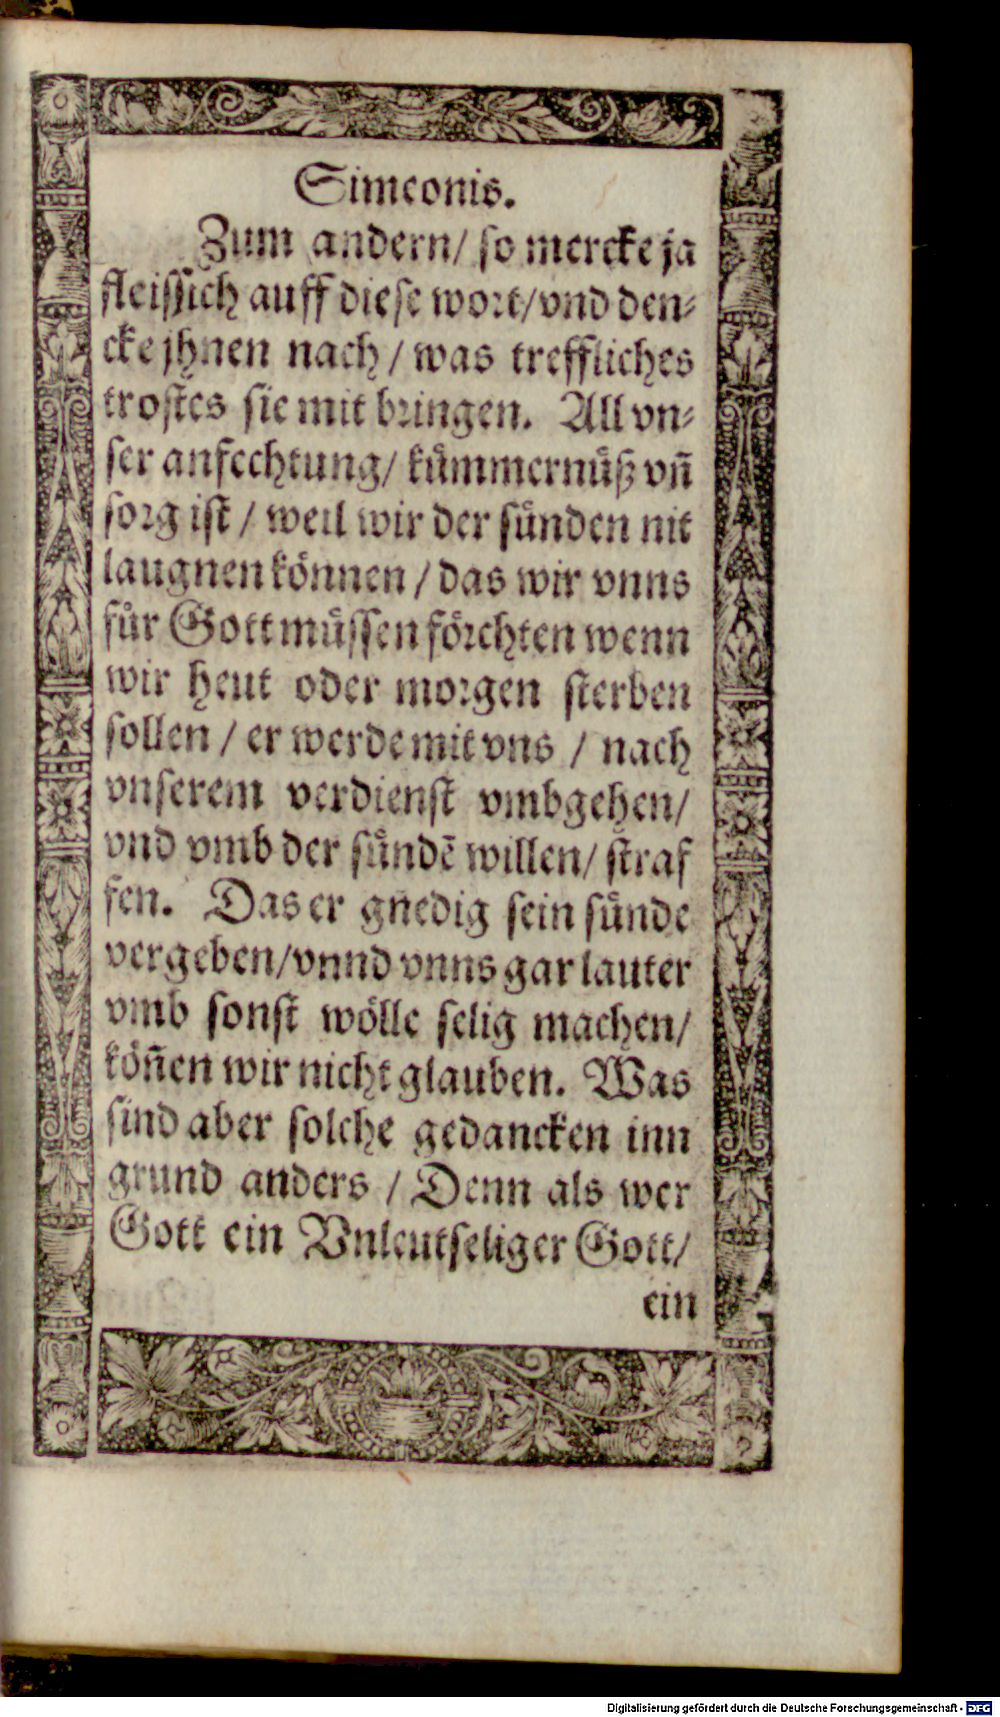 Simeonis.
Zum andern/ so mercke ja
fleissich auff diese wort/vnd den⸗
cke jhnen nach/ was treffliches
trostes sie mit bringen. All vn⸗
ser anfechtung/ kuͤmmernuͤß vn̄
sorg ist / weil wir der suͤnden nit
laugnen koͤnnen / das wir vnns
fuͤr Gott muͤssen foͤrchten wenn
wir heut oder morgen sterben
sollen / er werde mit vns / nach
vnserem verdienst vmbgehen/
vnd vmb der suͤndē willen/ straf
fen. Das er gnedig sein suͤnde
vergeben/vnnd vnns gar lauter
vmb sonst woͤlle selig machen/
koͤn̄en wir nicht glauben. Was
sind aber solche gedancken inn
grund anders / Denn als wer
Gott ein Vnleutseliger Gott/
ein
Digitalisierung gefördert durch die Deutsche Forschungsgemeinschaft - DFG